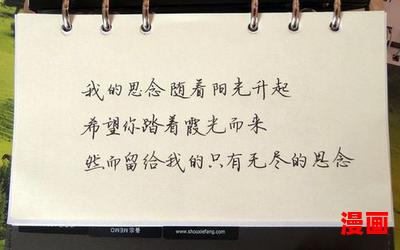 我的思念随着阳光升起
希望你踏着霞光而来
然而留给我的只有无尽的思念
MEMO
www.shouxiefang.com
漫画